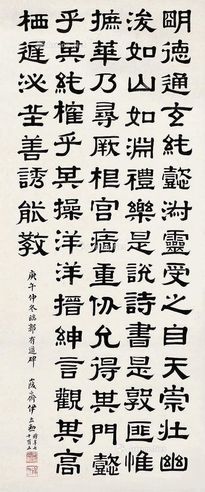 眀德通玄純懿淑靈受之自天崇壯幽
浚如山如淵禮樂是說詩書是敦匪惟
摭華乃尋厥根宮牆重仞允得其門懿
乎其純榷乎其操洋洋搢紳言觀其高
栖遲泌丘善誘能教
庚午仲冬臨郭有道碑
峻齋伊立勳時年七十有五